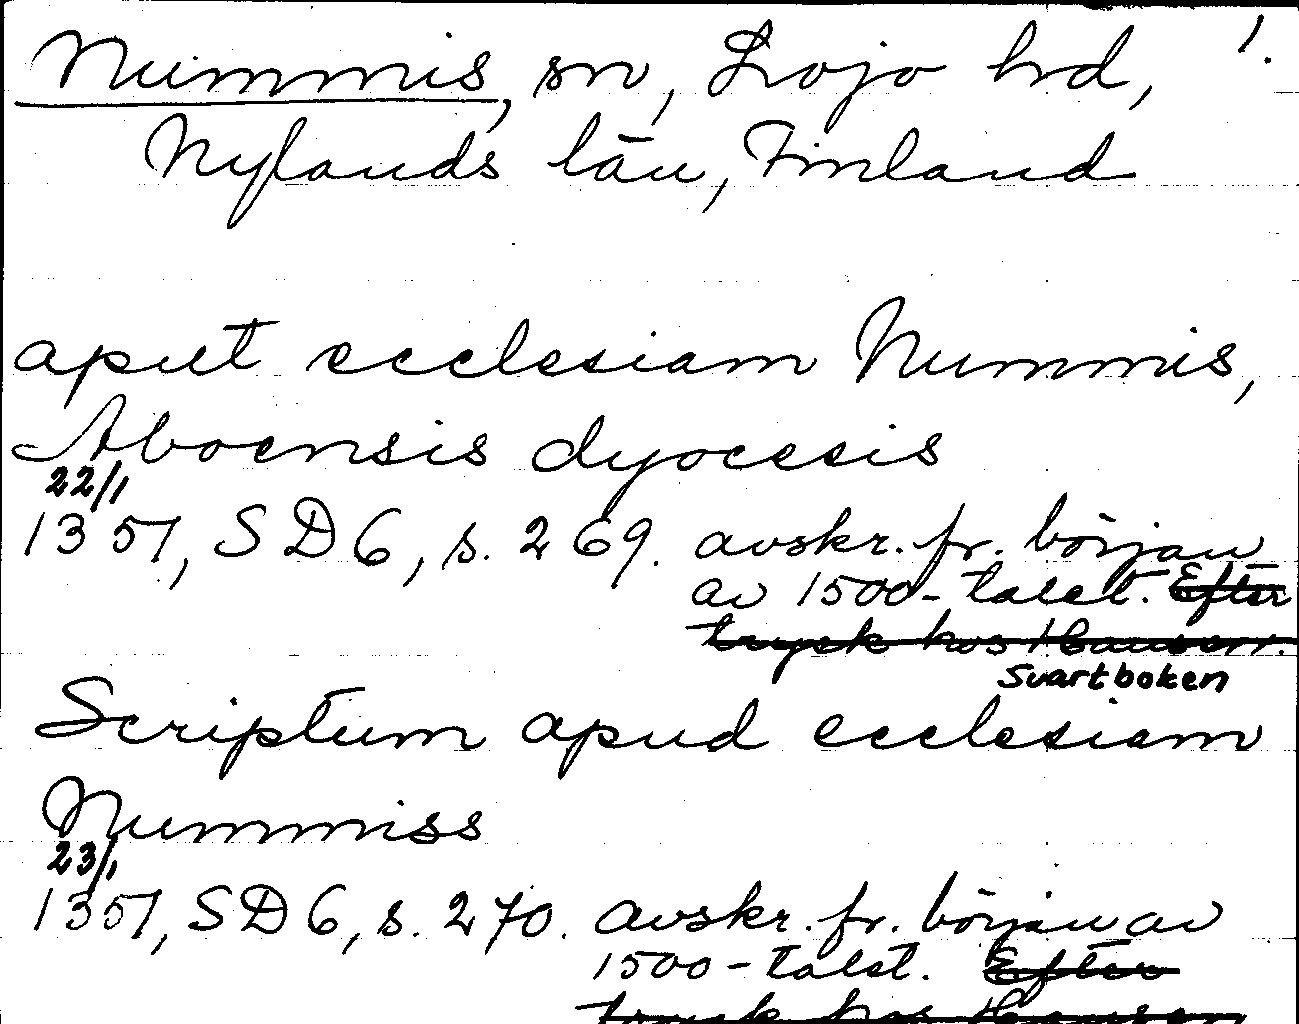 Nummis, sn, Lojo hrd, 1.
Nylands län, Finland
aput ecclesiam Nummis,
Aboensis dyocesis
22/1
1351, SD 6, s. 269. avskr. fr. början
av 1500-talet. Efter
tryck hos Hausen.
Svartboken
Scriptum apud ecclesiam
Nummiss
23/1
1351, SD 6, s. 270. avskr. fr. början av
1500-talet. Efter
tryck hos Hausen